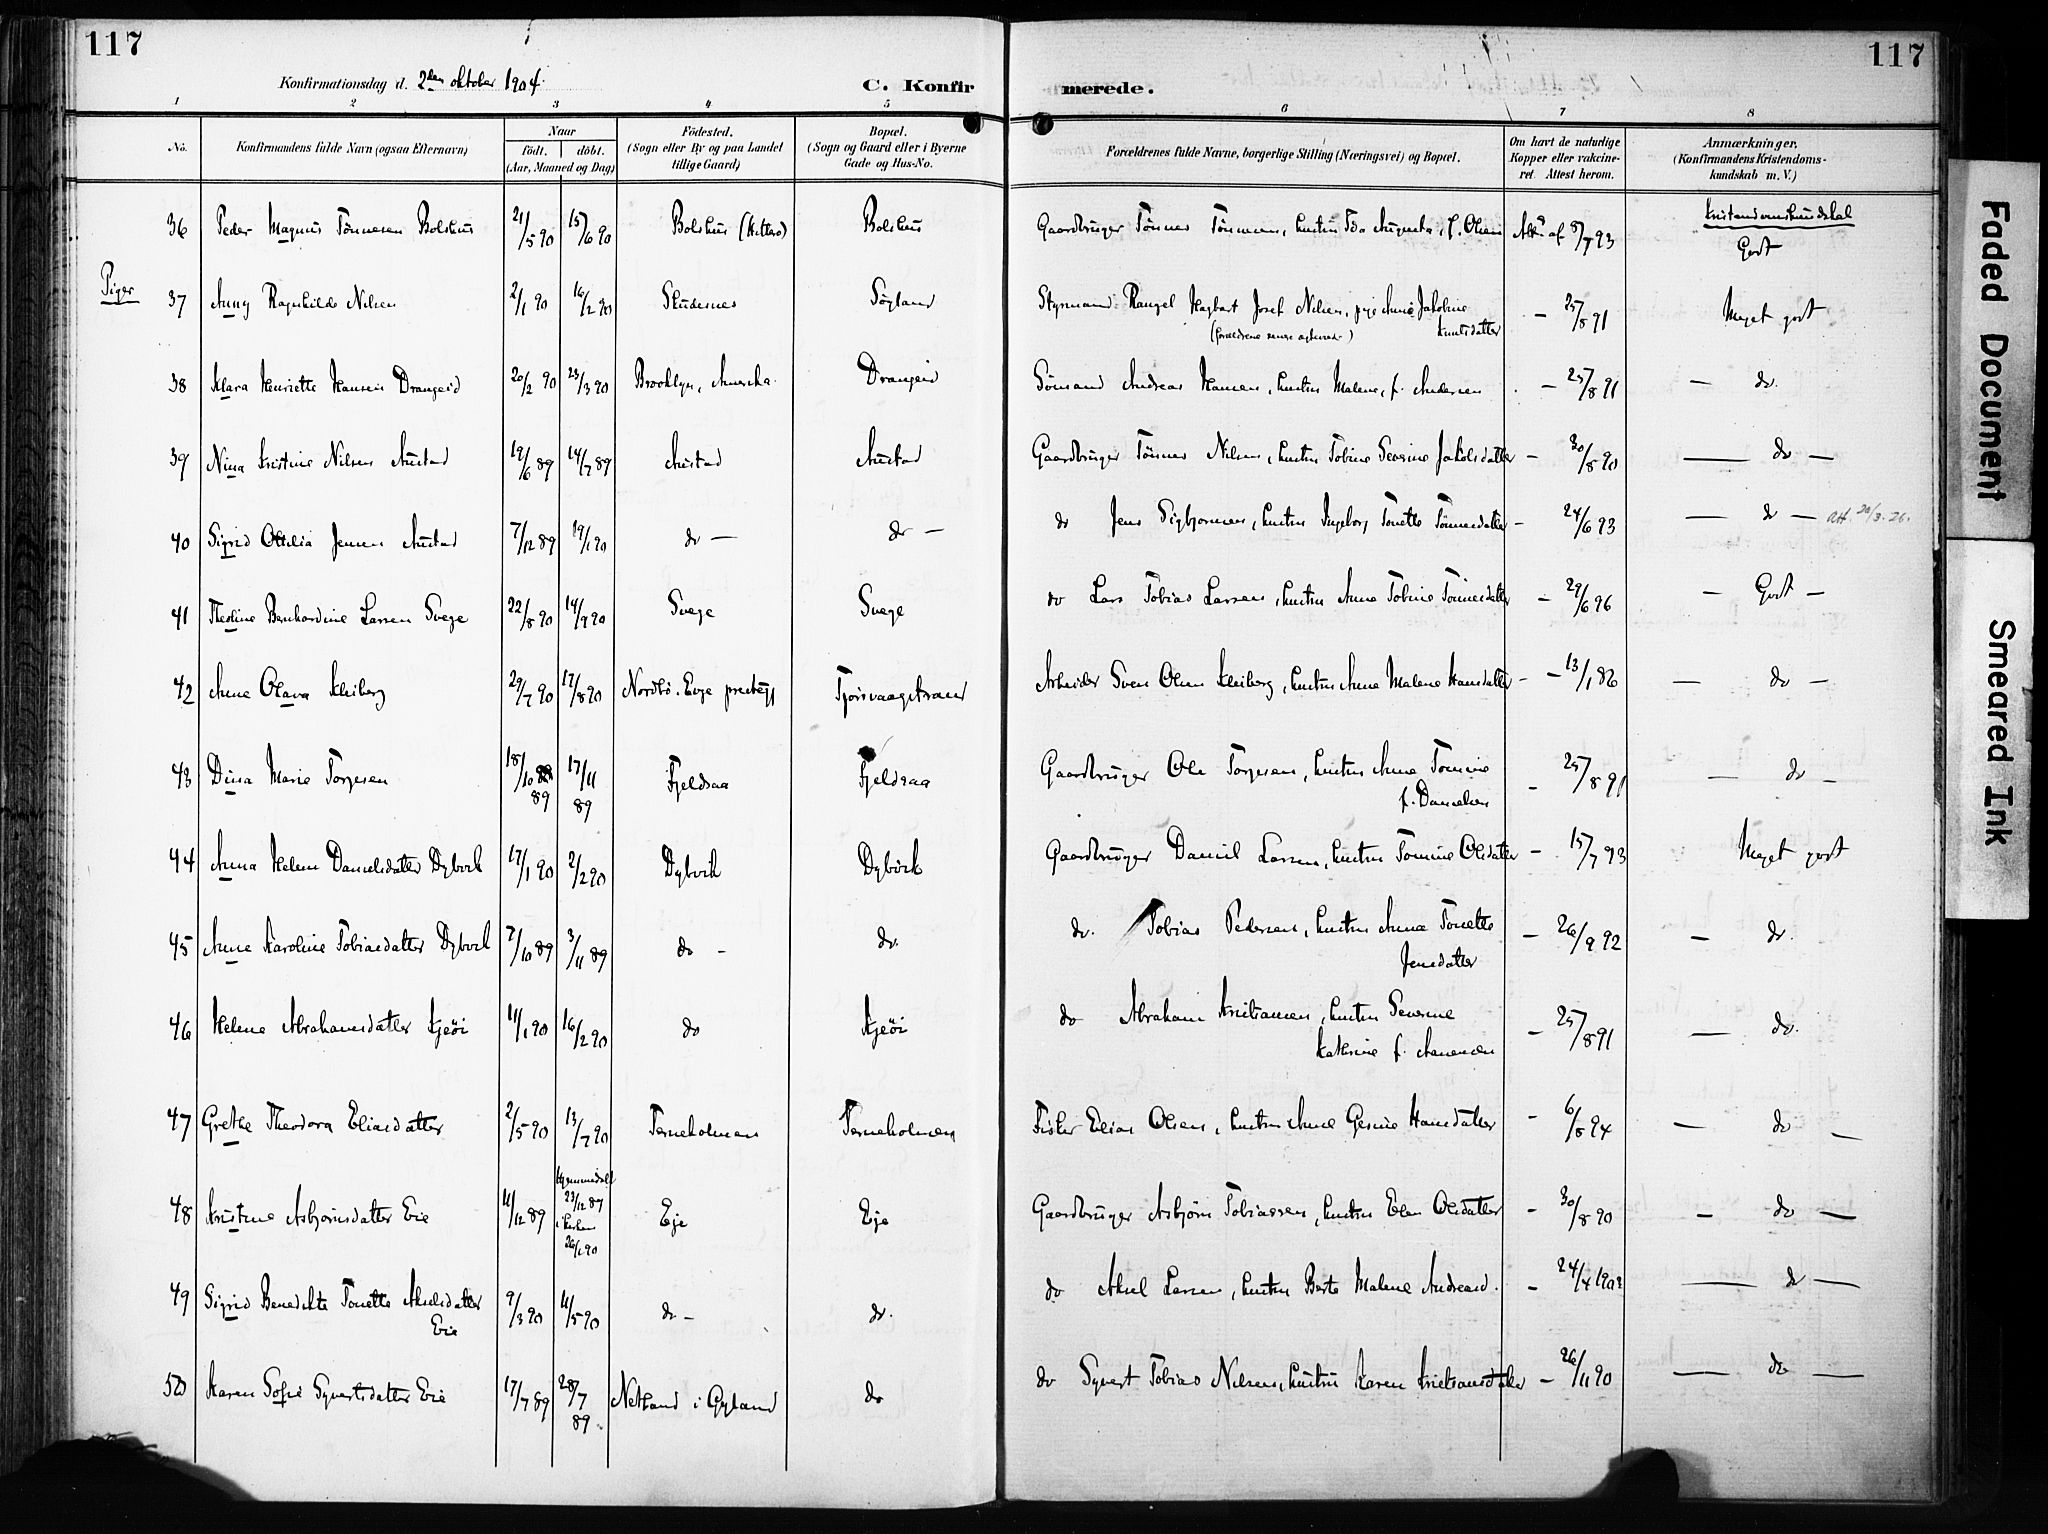 117
117
Konfirmationsdag d. 2den oktober 1904.
C. Konfir
merede.
1 2 3 4 5 6 7 8
No.
Konfirmandens fulde Navn (ogsaa Efternavn)
Naar
födt. döbt.
(Aar, Maaned og Dag)
Födested.
(Sogn eller By og paa Landet
tillige Gaard)
Bopæl.
(Sogn og Gaard eller i Byerne
Gade og Hus-No.
Forældrenes fulde Navne, borgerlige Stilling (Næringsvei) og Bopæl.
Om havt de naturlige
Kopper eller vakcine-
ret. Attest herom.
Anmærkninger.
(Konfirmandens Kristendoms-
kundskab m. V.)
36 Peder Magnus Tönnesen Bolshus 21/5 90 15/6 90 Bolshus (Hitterö) Bolshus Gaardbruger Tönnes Tönnesen, hustru Ida Augusta, f. Olsen Att. af 8/7 93 Kristendomskundskab
Godt
Piger
37 Anny Ragnhilde Nilsen 2/1 90 16/2 90 Skudesnes Sögland Styrmand Rangel Hagbart Josef Nilsen, pige Anne Jakobine
Knutsdatter — 25/8 91 Meget godt
38 Klara Henriette Hansen Drangeid 20/2 90 23/3 90 Brooklyn, Amerika. Drangeid Sömand Andreas Hansen, hustru Malene, f. Andersen — 25/8 91 — do.
39 Nina Kristine Nilsen Austad 19/6 89 14/7 89 Austad Austad Gaardbruger Tönnes Nilsen, hustru Tobine Severine Jakobsdatter — 30/8 90 — do —
40 Sigrid Otilia Jensen Austad 7/12 89 19/1 90 do — do — do Jens Sigbjörnsen, hustru Ingeborg Tonette Tönnesdatter — 24/6 93 — do — att. 20/3-26.
41 Thedine Bernhardine Larsen Svege 22/8 90 14/9 90 Svege Svege do Lars Tobias Larsen, hustru Anne Tobine Tönnesdatter — 29/6 96 — Godt —
42 Anne Olava Kleiberg 29/7 90 17/8 90 Nordbö. Evje prestegj Fjorsvaagstrand Arbeider Sven Olsen Kleiberg, hustru Anne Malene Hansdatter — 13/1 86 — do —
43 Dina Marie Torjesen 18/10 89 17/11 89 Fjeldsaa Fjeldsaa Gaardbruger Ole Torjesen, hustru Anne Tomine
f. Danielsen — 25/8 91 — do —
44 Anna Helene Danielsdatter Dybvik 17/1 90 2/2 90 Dybvik Dybvik Gaardbruger Daniel Larsen, hustru Tomine Olsdatter — 15/7 93 Meget godt
45 Anne Karoline Tobiasdatter Dybvik 7/10 89 3/11 89 do — do. do. Tobias Pedersen, hustru Anne Tonette
Jensdatter — 26/9 92 — do.
46 Helene Abrahamsdatter Kjeöi 11/1 90 16/2 90 do Kjeöi do Abraham Kristiansen, hustru Severine
Kathrine f. Aanensen — 25/8 91 — do.
47 Grethe Theodora Eliasdatter 2/5 90 13/7 90 Terneholmen Terneholmen Fisker Elias Olsen, hustru Anne Gesine Hansdatter — 6/8 94 — do —
48 Kristine Asbjörnsdatter Eie 11/12 89 Hjemmedöbt
23/12 89
i kirken
26/1 90 Eje Eje Gaardbruger Asbjörn Tobiassen, hustru Elen Olsdatter — 30/8 90 — do —
49 Sigrid Benedikte Tonette Akselsdatter
Eie 9/3 90 11/5 90 do — do. do Aksel Larsen, hustru Berte Malene Andreasd. — 24/4 1902 — do —
50 Karen Sofie Syvertsdatter Eie 17/7 89 28/7 89. Netland i Gyland do do Syvert Tobias Nilsen, hustru Karen Kristiansdatter — 26/11 90 — do —
Faded Document
Smeared Ink